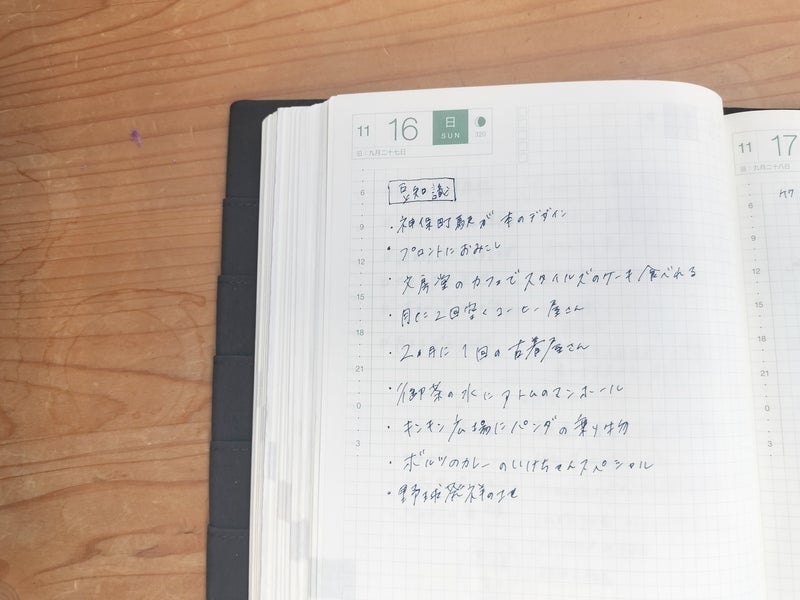 11 16 日 SUN 320
旧:九月二十七日
豆知識
・神保町駅が本のデザイン
・プロントにおみこし
・文房堂のカフェでスタイルズのケーキ食べれる
・月に2回空くコーヒー屋さん
・2ヵ月に1回の古着屋さん
・御茶の水にアトムのマンホール
・キンキン広場にパンダの乗り物
・ボルツのカレーのいけちゃんスペシャル
・野球発祥の地
6
9
12
15
18
21
0
3
11 17
旧:九月二十八日
6
9
12
15
18
21
0
3